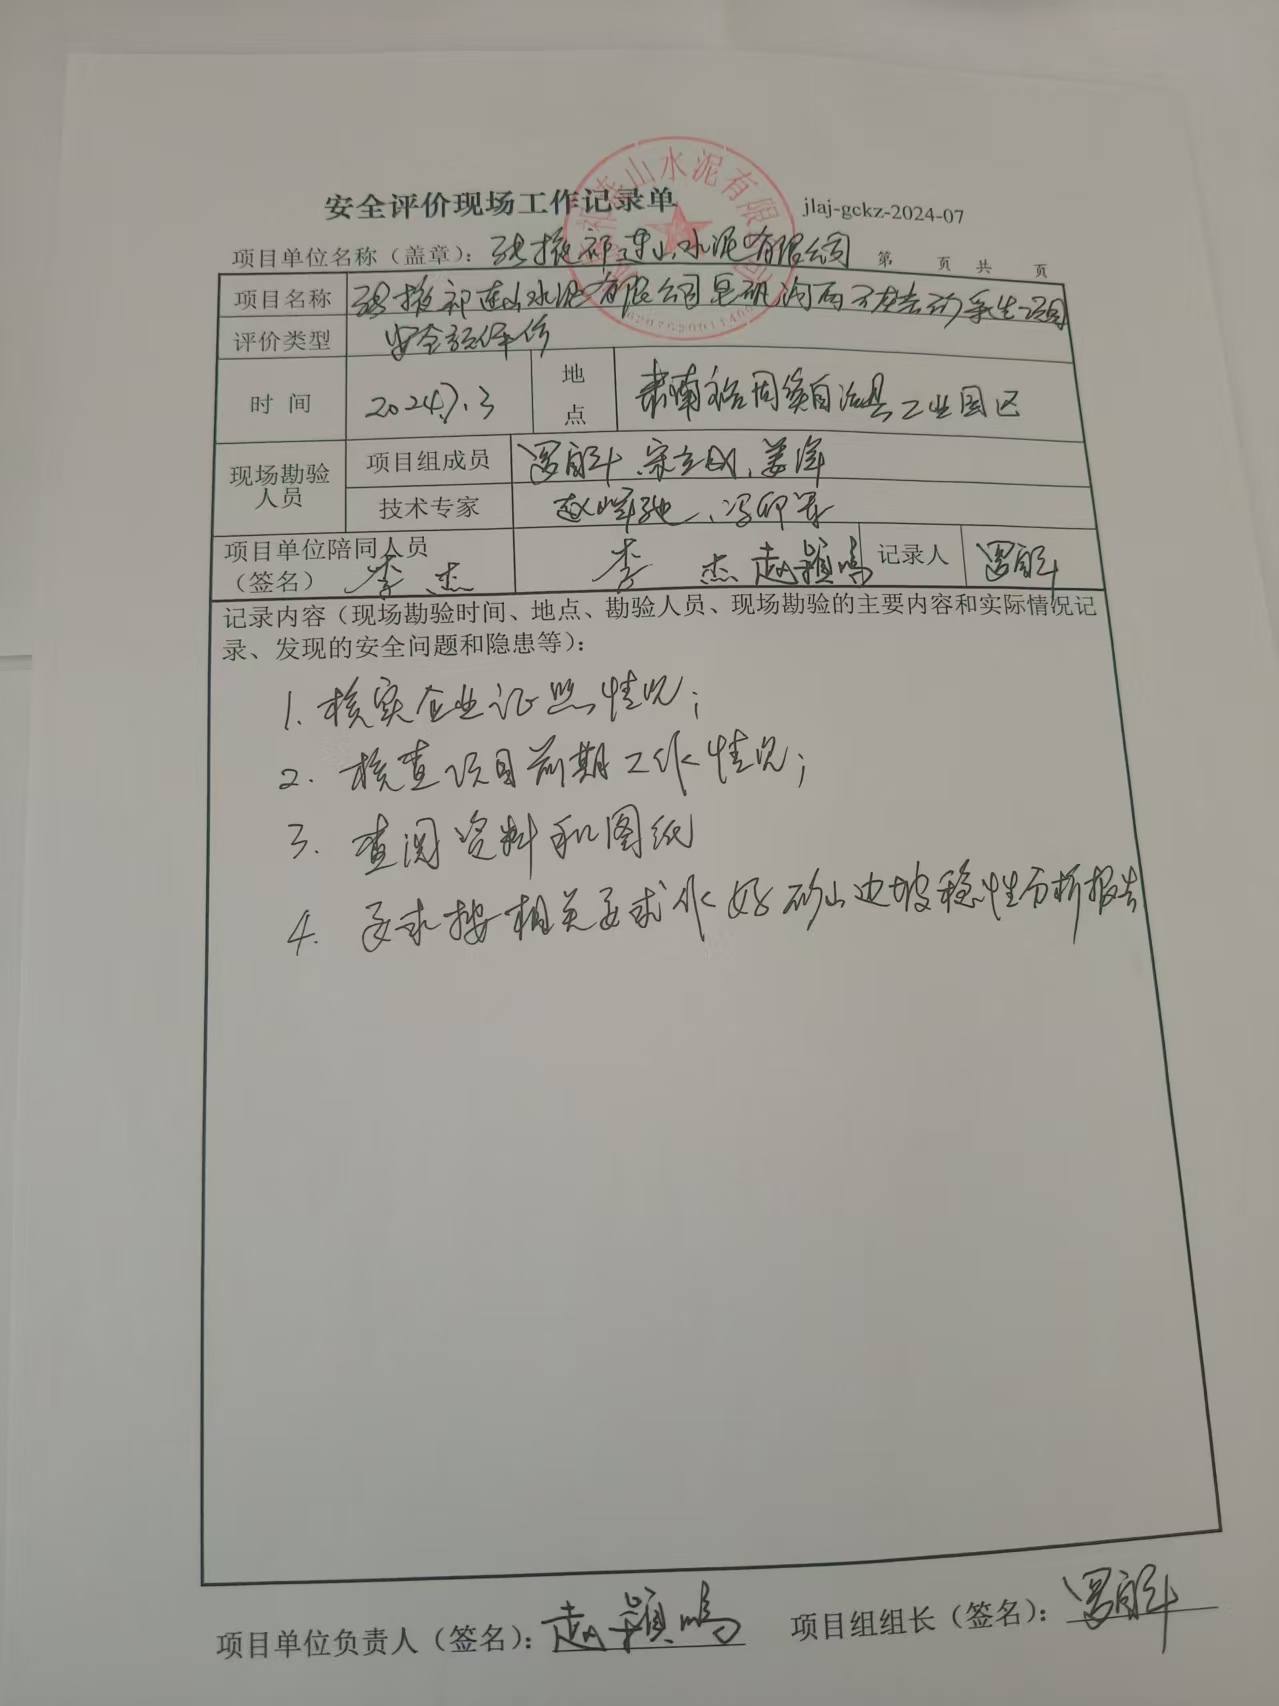 安全评价现场工作记录单 jlaj-gckz-2024-07
项目单位名称（盖章）：张掖祁连山水泥有限公司 第 页 共 页
祁连山水泥有限
项目名称 张掖祁连山水泥有限公司 项目
评价类型 安全预评价
时间 2024.7.3 地点 肃南裕固族自治县工业园区
现场勘验人员 项目组成员 宋立
技术专家 赵
项目单位陪同人员（签名） 李杰 李杰 赵颖鸣 记录人
记录内容（现场勘验时间、地点、勘验人员、现场勘验的主要内容和实际情况记
录、发现的安全问题和隐患等）：
1. 核实企业证照情况；
2. 核查项目前期工作情况；
3. 查阅资料和图纸
4. 要求按相关要求做好矿山边坡稳性分析报告
项目单位负责人（签名）：赵颖鸣 项目组组长（签名）：